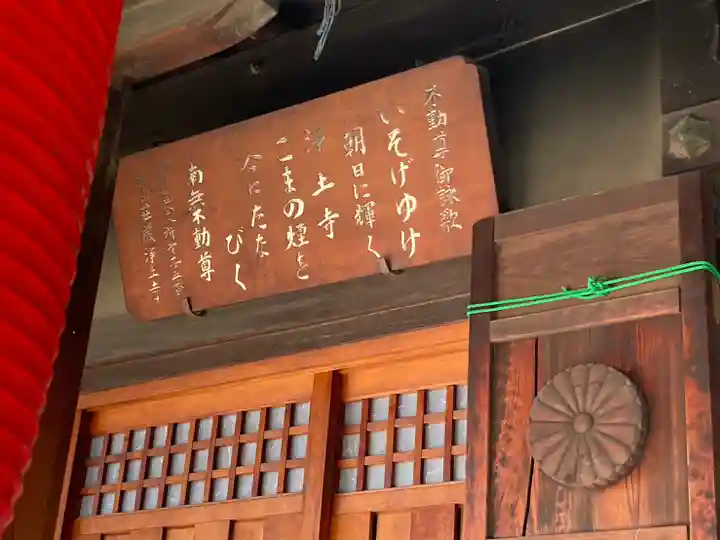 不動尊御詠歌
いそげゆけ
朝日に輝く
浄土寺
ごまの煙と
今にたな
びく
南無不動尊
浄土寺